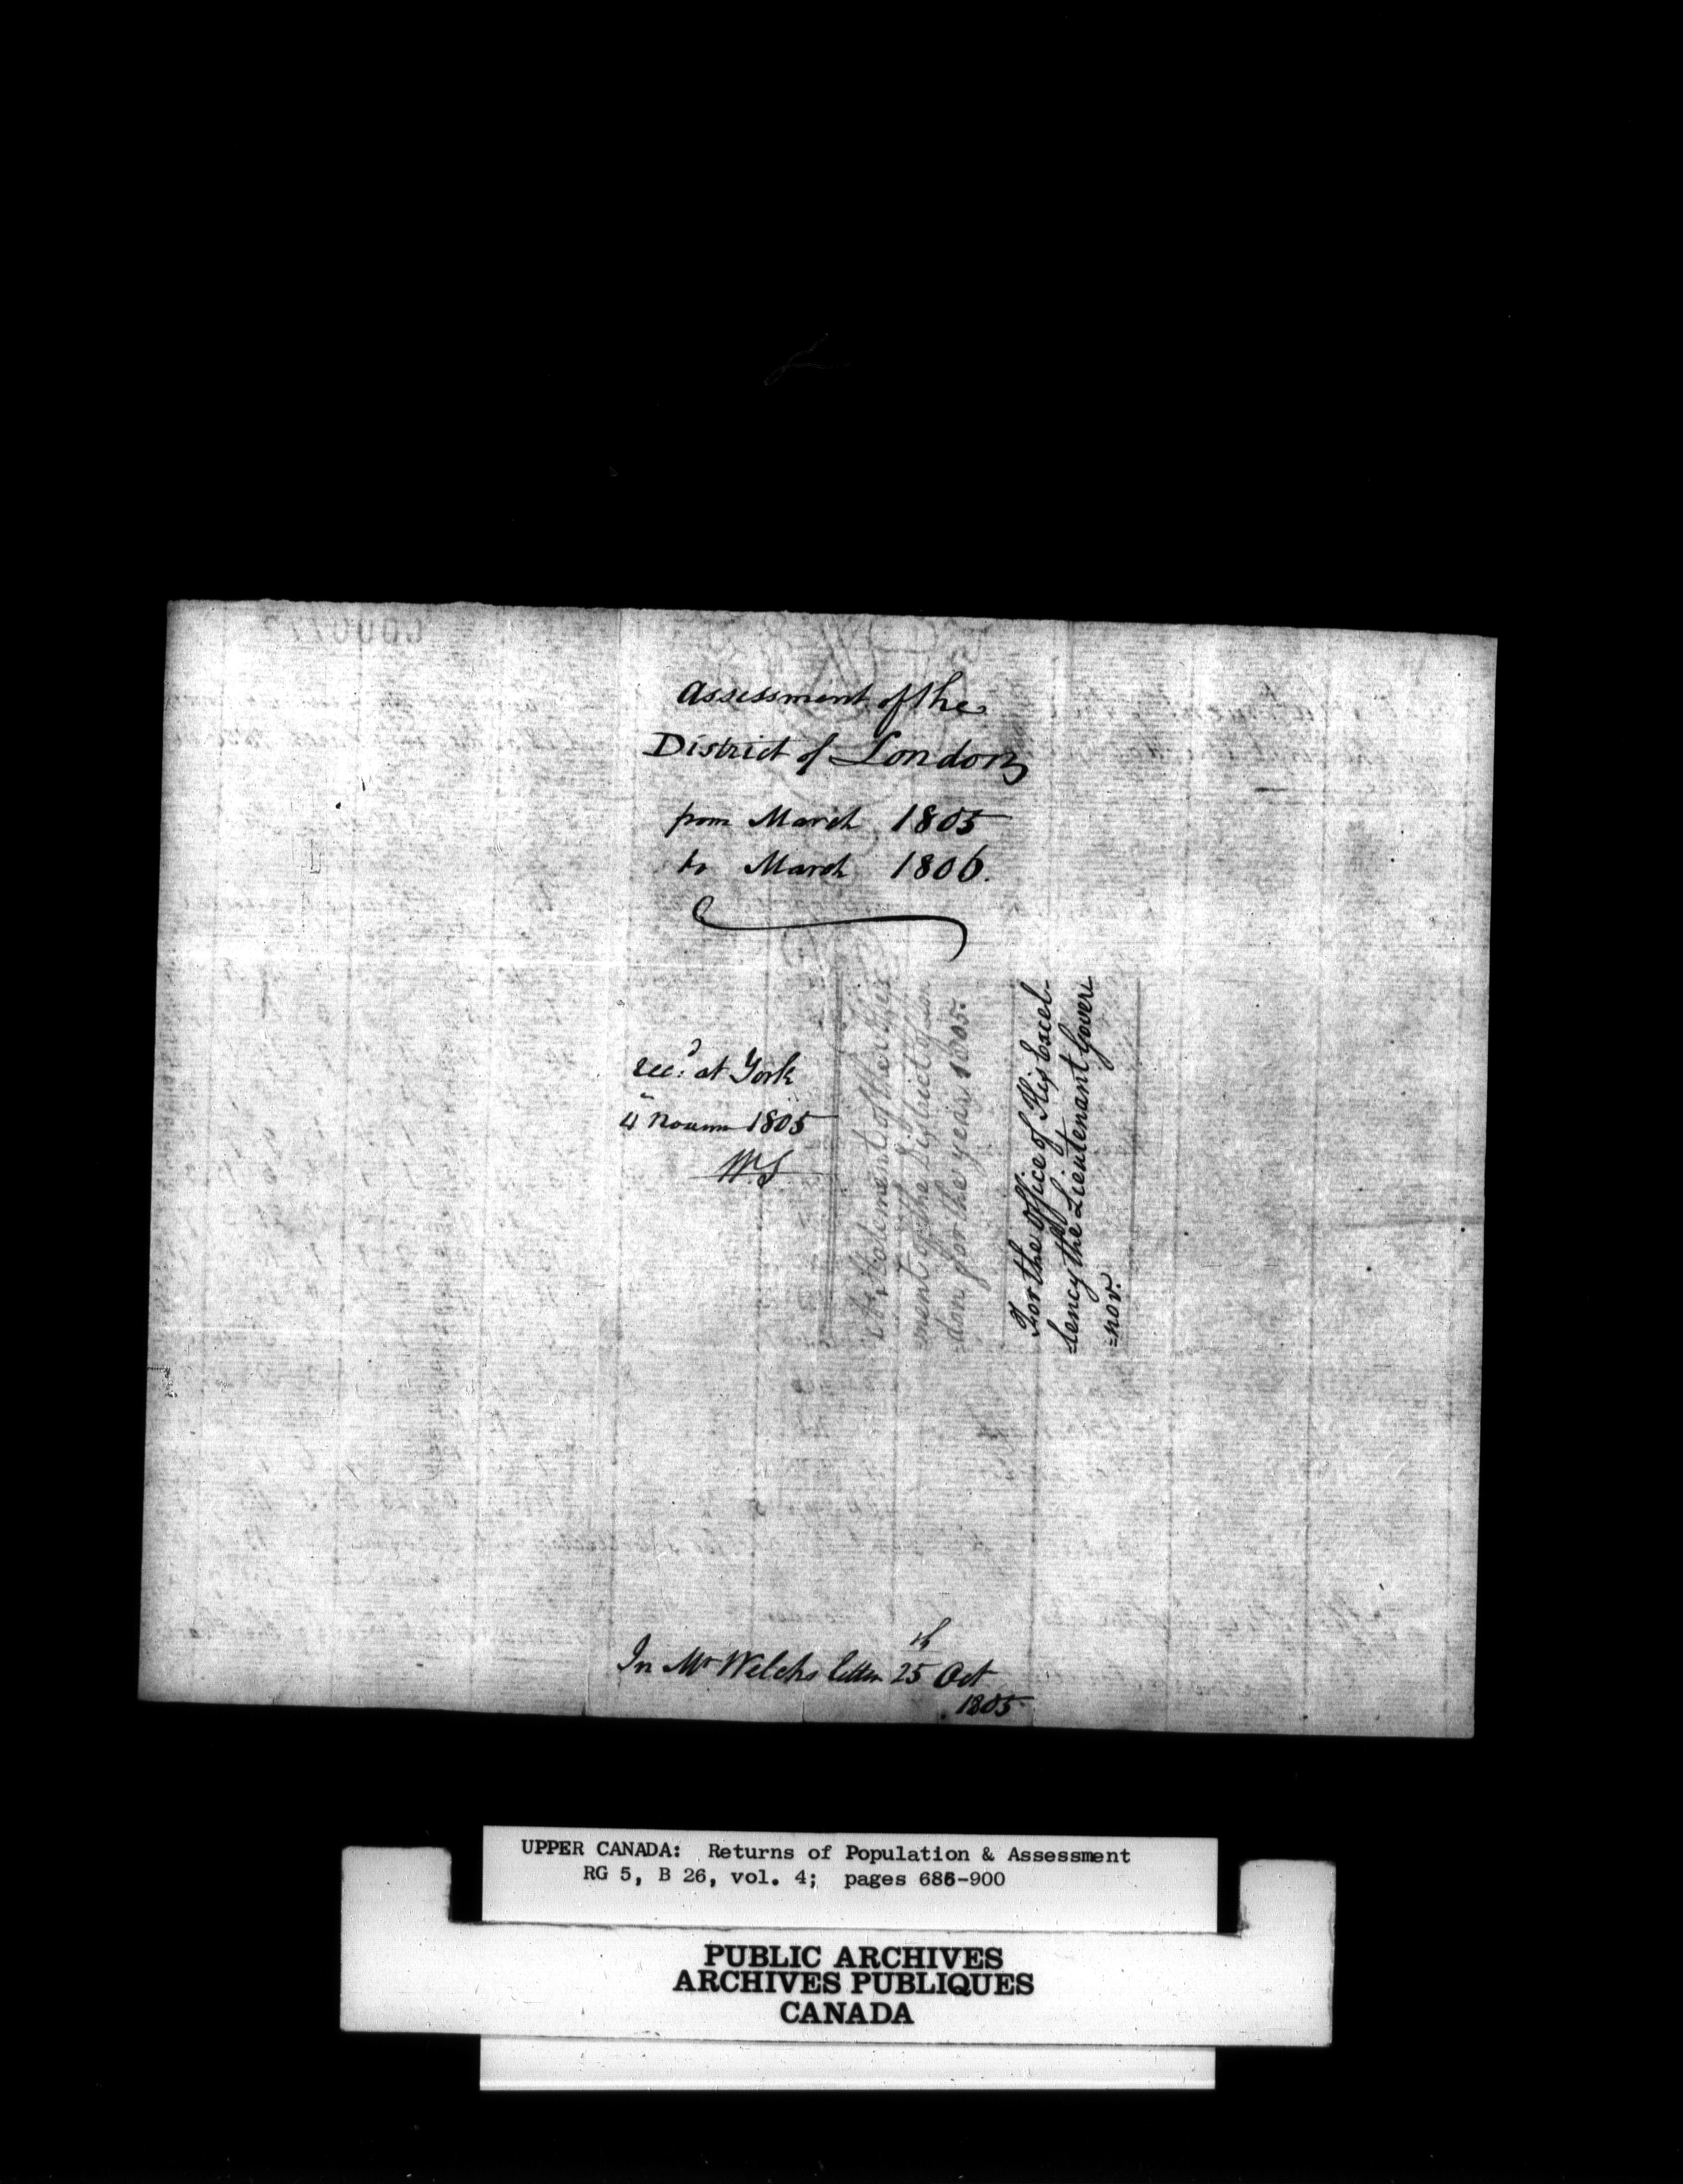 Assessment of the
District of London
from March 1805
to March 1806.
Rec.d at York
4 Novem 1805
WS
A Statement of the Assess
ment of the District of Lon
don, for the year, 1805.
For the Office of His Excel-
lency the Lieutenant Gover
=nor.
In Mr Welchs letter 25th Oct
1805
UPPER CANADA: Returns of Population & Assessment
RG 5, B 26, vol. 4; pages 686-900
PUBLIC ARCHIVES
ARCHIVES PUBLIQUES
CANADA